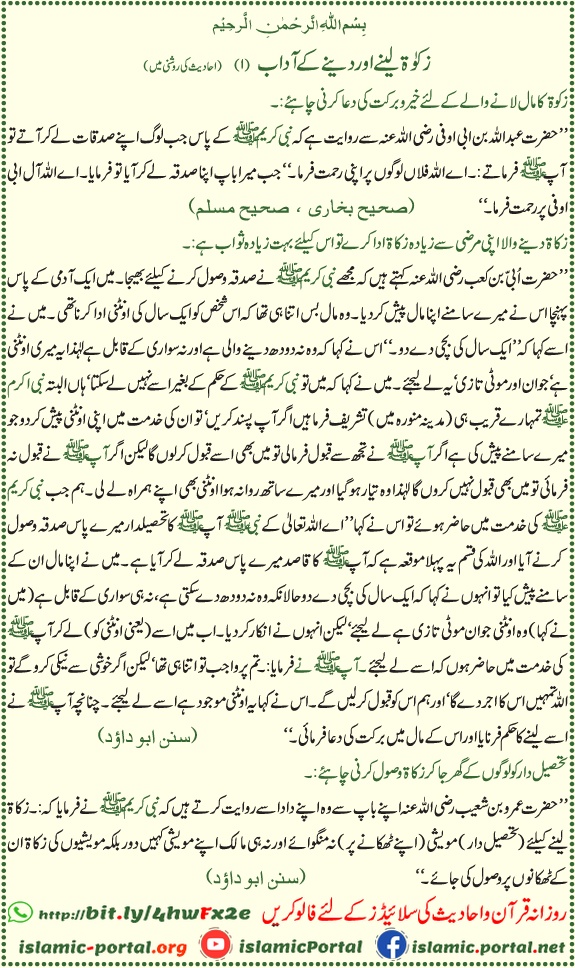 بِسْمِ اللهِ الرَّحْمٰنِ الرَّحِيْمِ
زکوٰۃ لینے اور دینے کے آداب (۱) (احادیث کی روشنی میں)
زکوۃ کا مال لانے والے کے لئے خیر و برکت کی دعا کرنی چاہئے:۔
’’حضرت عبداللہ بن ابی اوفی رضی اللہ عنہ سے روایت ہے کہ نبی کریم ﷺ کے پاس جب لوگ اپنے صدقات لے کر آتے تو
آپ ﷺ فرماتے:۔ اے اللہ فلاں لوگوں پر اپنی رحمت فرما۔‘‘ جب میرا باپ اپنا صدقہ لے کر آیا تو فرمایا۔ اے اللہ آل ابی
اوفی پر رحمت فرما۔‘‘ (صحیح بخاری ، صحیح مسلم)
زکاۃ دینے والا اپنی مرضی سے زیادہ زکاۃ ادا کرے تو اس کیلئے بہت زیادہ ثواب ہے:۔
’’حضرت اُبیّ بن کعب رضی اللہ عنہ کہتے ہیں کہ مجھے نبی کریم ﷺ نے صدقہ وصول کرنے کیلئے بھیجا۔ میں ایک آدمی کے پاس
پہنچا اس نے میرے سامنے اپنا مال پیش کر دیا۔ وہ مال بس اتنا ہی تھا کہ اس شخص کو ایک سال کی اونٹنی ادا کرنا تھی۔ میں نے
اسے کہا کہ ’’ایک سال کی بچی دے دو۔‘‘ اس نے کہا کہ وہ نہ دودھ دینے والی ہے اور نہ سواری کے قابل ہے لہٰذا یہ میری اونٹنی
ہے‘ جوان اور موٹی تازی‘ یہ لے لیجئے۔ میں نے کہا کہ میں تو نبی کریم ﷺ کے حکم کے بغیر اسے نہیں لے سکتا‘ ہاں البتہ نبی اکرم
ﷺ تمہارے قریب ہی (مدینہ منورہ میں) تشریف فرما ہیں اگر آپ پسند کریں‘ تو ان کی خدمت میں اپنی اونٹنی پیش کر دو جو
میرے سامنے پیش کی ہے اگر آپ ﷺ نے تجھ سے قبول فرما لی تو میں بھی اسے قبول کر لوں گا لیکن اگر آپ ﷺ نے قبول نہ
فرمائی تو میں بھی قبول نہیں کروں گا لہٰذا وہ تیار ہو گیا اور میرے ساتھ روانہ ہوا اونٹنی بھی اپنے ہمراہ لے لی۔ ہم جب نبی کریم
ﷺ کی خدمت میں حاضر ہوئے تو اس نے کہا ’’اے اللہ تعالیٰ کے نبی ﷺ آپ ﷺ کا تحصیلدار میرے پاس صدقہ وصول
کرنے آیا اور اللہ کی قسم یہ پہلا موقعہ ہے کہ آپ ﷺ کا قاصد میرے پاس صدقہ لے کر آیا ہے۔ میں نے اپنا مال ان کے
سامنے پیش کیا تو انہوں نے کہا کہ ایک سال کی بچی دے دو حالانکہ وہ نہ دودھ دے سکتی ہے، نہ ہی سواری کے قابل ہے (میں
نے کہا) وہ اونٹنی جوان موٹی تازی ہے لے لیجئے‘ لیکن انہوں نے انکار کر دیا۔ اب میں اسے (یعنی اونٹنی کو) لے کر آپ ﷺ
کی خدمت میں حاضر ہوں کہ اسے لے لیجئے۔ آپ ﷺ نے فرمایا:۔ تم پر واجب تو اتنا ہی تھا‘ لیکن اگر خوشی سے نیکی کرو گے تو
اللہ تمہیں اس کا اجر دے گا‘ اور ہم اس کو قبول کر لیں گے۔ اس نے کہا یہ اونٹنی موجود ہے اسے لے لیجئے۔ چنانچہ آپ ﷺ نے
اسے لینے کا حکم فرمایا اور اس کے مال میں برکت کی دعا فرمائی۔‘‘ (سنن ابو داؤد)
تحصیل دار کو لوگوں کے گھر جا کر زکاۃ وصول کرنی چاہئے:۔
’’حضرت عمرو بن شعیب رضی اللہ عنہ اپنے باپ سے وہ اپنے دادا سے روایت کرتے ہیں کہ نبی کریم ﷺ نے فرمایا کہ:۔ زکاۃ
لینے کیلئے (تحصیل دار) مویشی (اپنے ٹھکانے پر) نہ منگوائے اور نہ ہی مالک اپنے مویشی کہیں دور بلکہ مویشیوں کی زکاۃ ان
کے ٹھکانوں پر وصول کی جائے۔‘‘ (سنن ابو داؤد)
روزانہ قرآن و احادیث کی سلائیڈز کے لئے فالو کریں http://bit.ly/4hwFx2e
islamic-portal.org islamicPortal islamic.portal.net